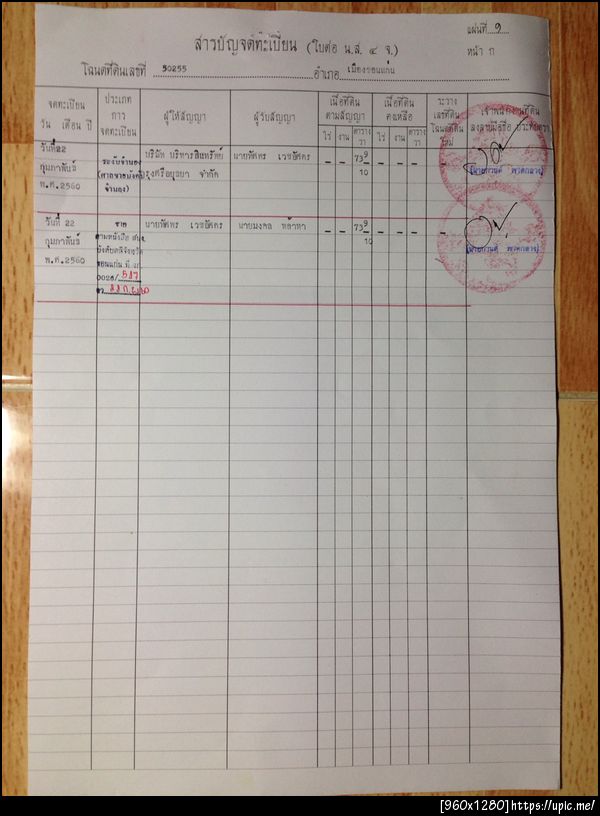 แผ่นที่ 9
สารบัญจดทะเบียน (ใบต่อ น.ส. ๔ จ.)
หน้า ก
โฉนดที่ดินเลขที่ 50255 อำเภอ เมืองขอนแก่น
จดทะเบียน
วัน เดือน ปี
ประเภท
การ
จดทะเบียน
ผู้ให้สัญญา
ผู้รับสัญญา
เนื้อที่ดิน
ตามสัญญา
ไร่ งาน ตาราง
วา
เนื้อที่ดิน
คงเหลือ
ไร่ งาน ตาราง
วา
ระวาง
เลขที่ดิน
โฉนดที่ดิน
ใหม่
เจ้าพนักงานที่ดิน
ลงลายมือชื่อ ประทับตรา
วันที่22
กุมภาพันธ์
พ.ศ.2560
ระงับจำนอง
(ศาลขายบังคับ
จำนอง)
บริษัท บริหารสินทรัพย์
กรุงศรีอยุธยา จำกัด
นายทัศพร เวชอัศดร
- - 73 9
10
- - - -
วันที่ 22
กุมภาพันธ์
พ.ศ.2560
ขาย
ตามหนังสือ สนง.
บังคับคดีจังหวัด
ขอนแก่น ที่ ยธ
0026/587
นายทัศพร เวชอัศดร
นายมงคล หล้าหา
- - 73 9
10
- - - -